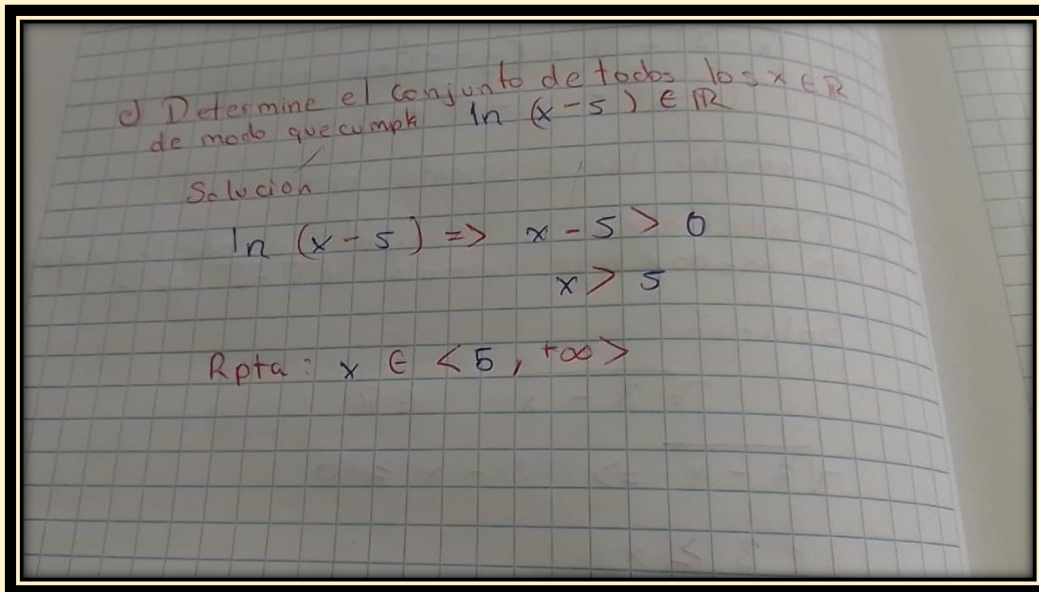 c) Determine el conjunto de todos los x ∈ R
de modo que cumple ln (x - 5) ∈ R
Solucion
ln (x - 5) => x - 5 > 0
x > 5
Rpta: x ∈ < 5, +∞ >